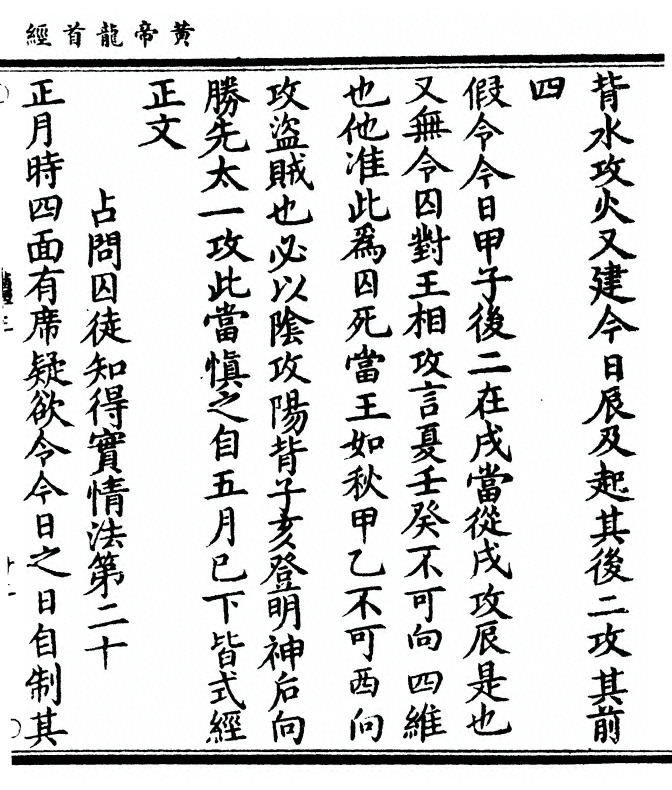 黃帝龍首經
背水攻火又建今日辰及起其後二攻其前
四
假令今日甲子後二在戌當從戌攻辰是也
又無令囚對王相攻言夏壬癸不可向四維
也他准此爲囚死當王如秋甲乙不可西向
攻盜賊也必以陰攻陽背子亥登明神后向
勝先太一攻此當慎之自五月已下皆式經
正文
占問囚徒知得實情法第二十
正月時四面有席疑欲令今日之日自制其